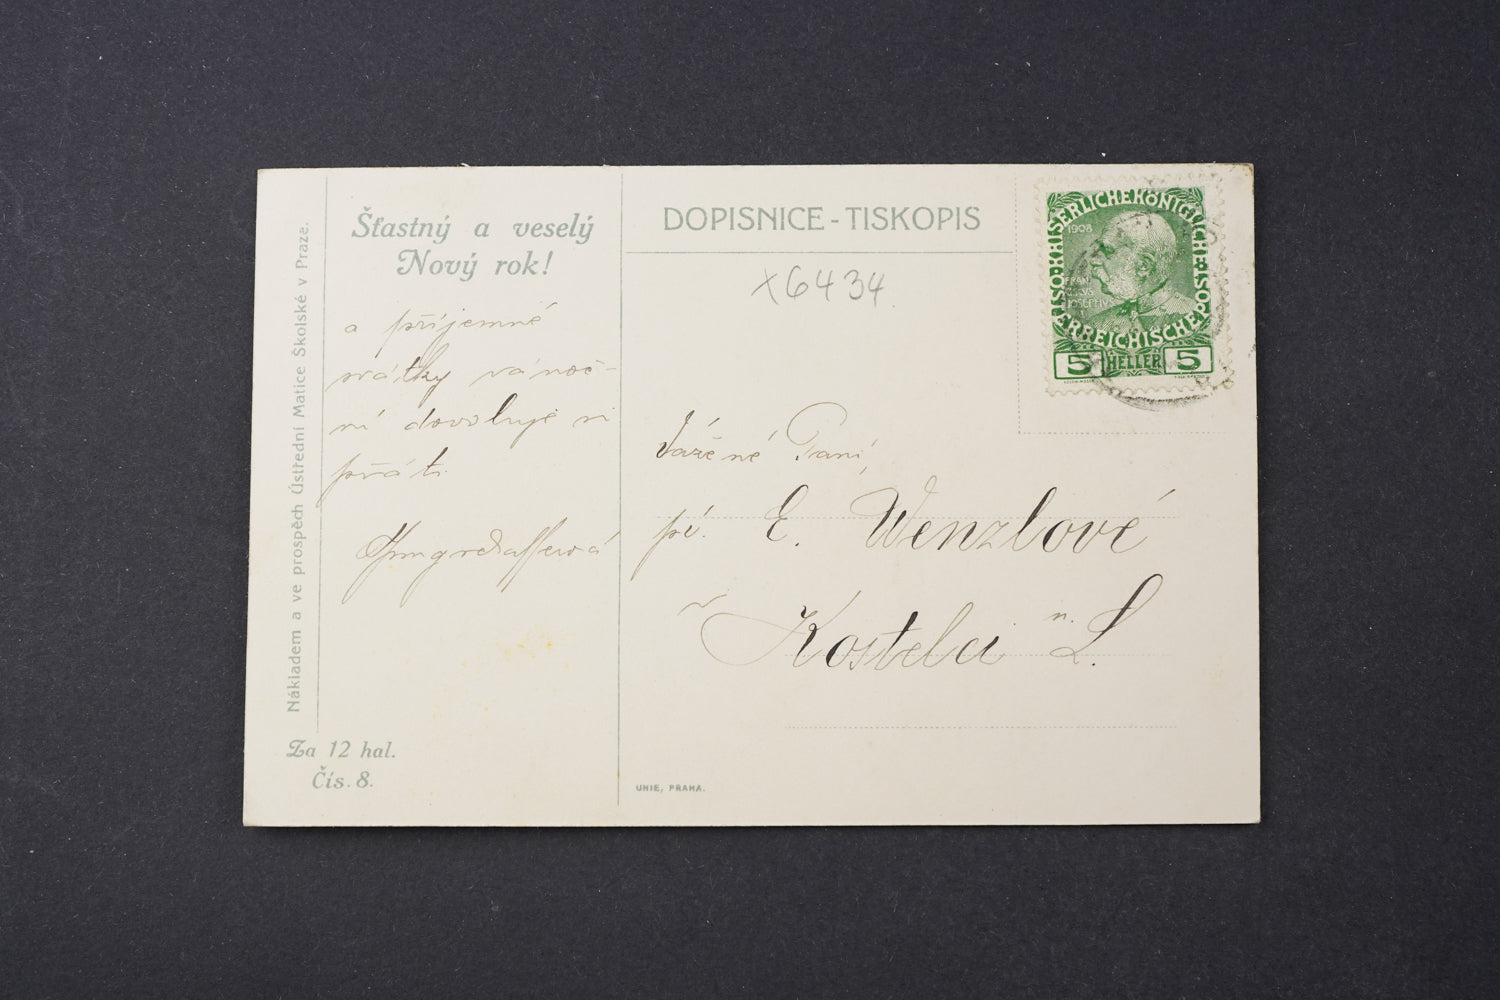 Nákladem a ve prospěch Ústřední Matice Školské v Praze.
Šťastný a veselý
Nový rok!
a příjemné
svátky vánoč-
ní dovoluje si
přáti
Za 12 hal.
Čís. 8.
DOPISNICE - TISKOPIS
x6434.
Vážené Paní,
pí. E. Wenzlové
v Kostelci n. L.
UNIE, PRAHA.
KAISERLICHE KÖNIGLICHE ÖSTERREICHISCHE POST
1908
FRAN
CISCVS
IOSEPHVS
5 HELLER 5